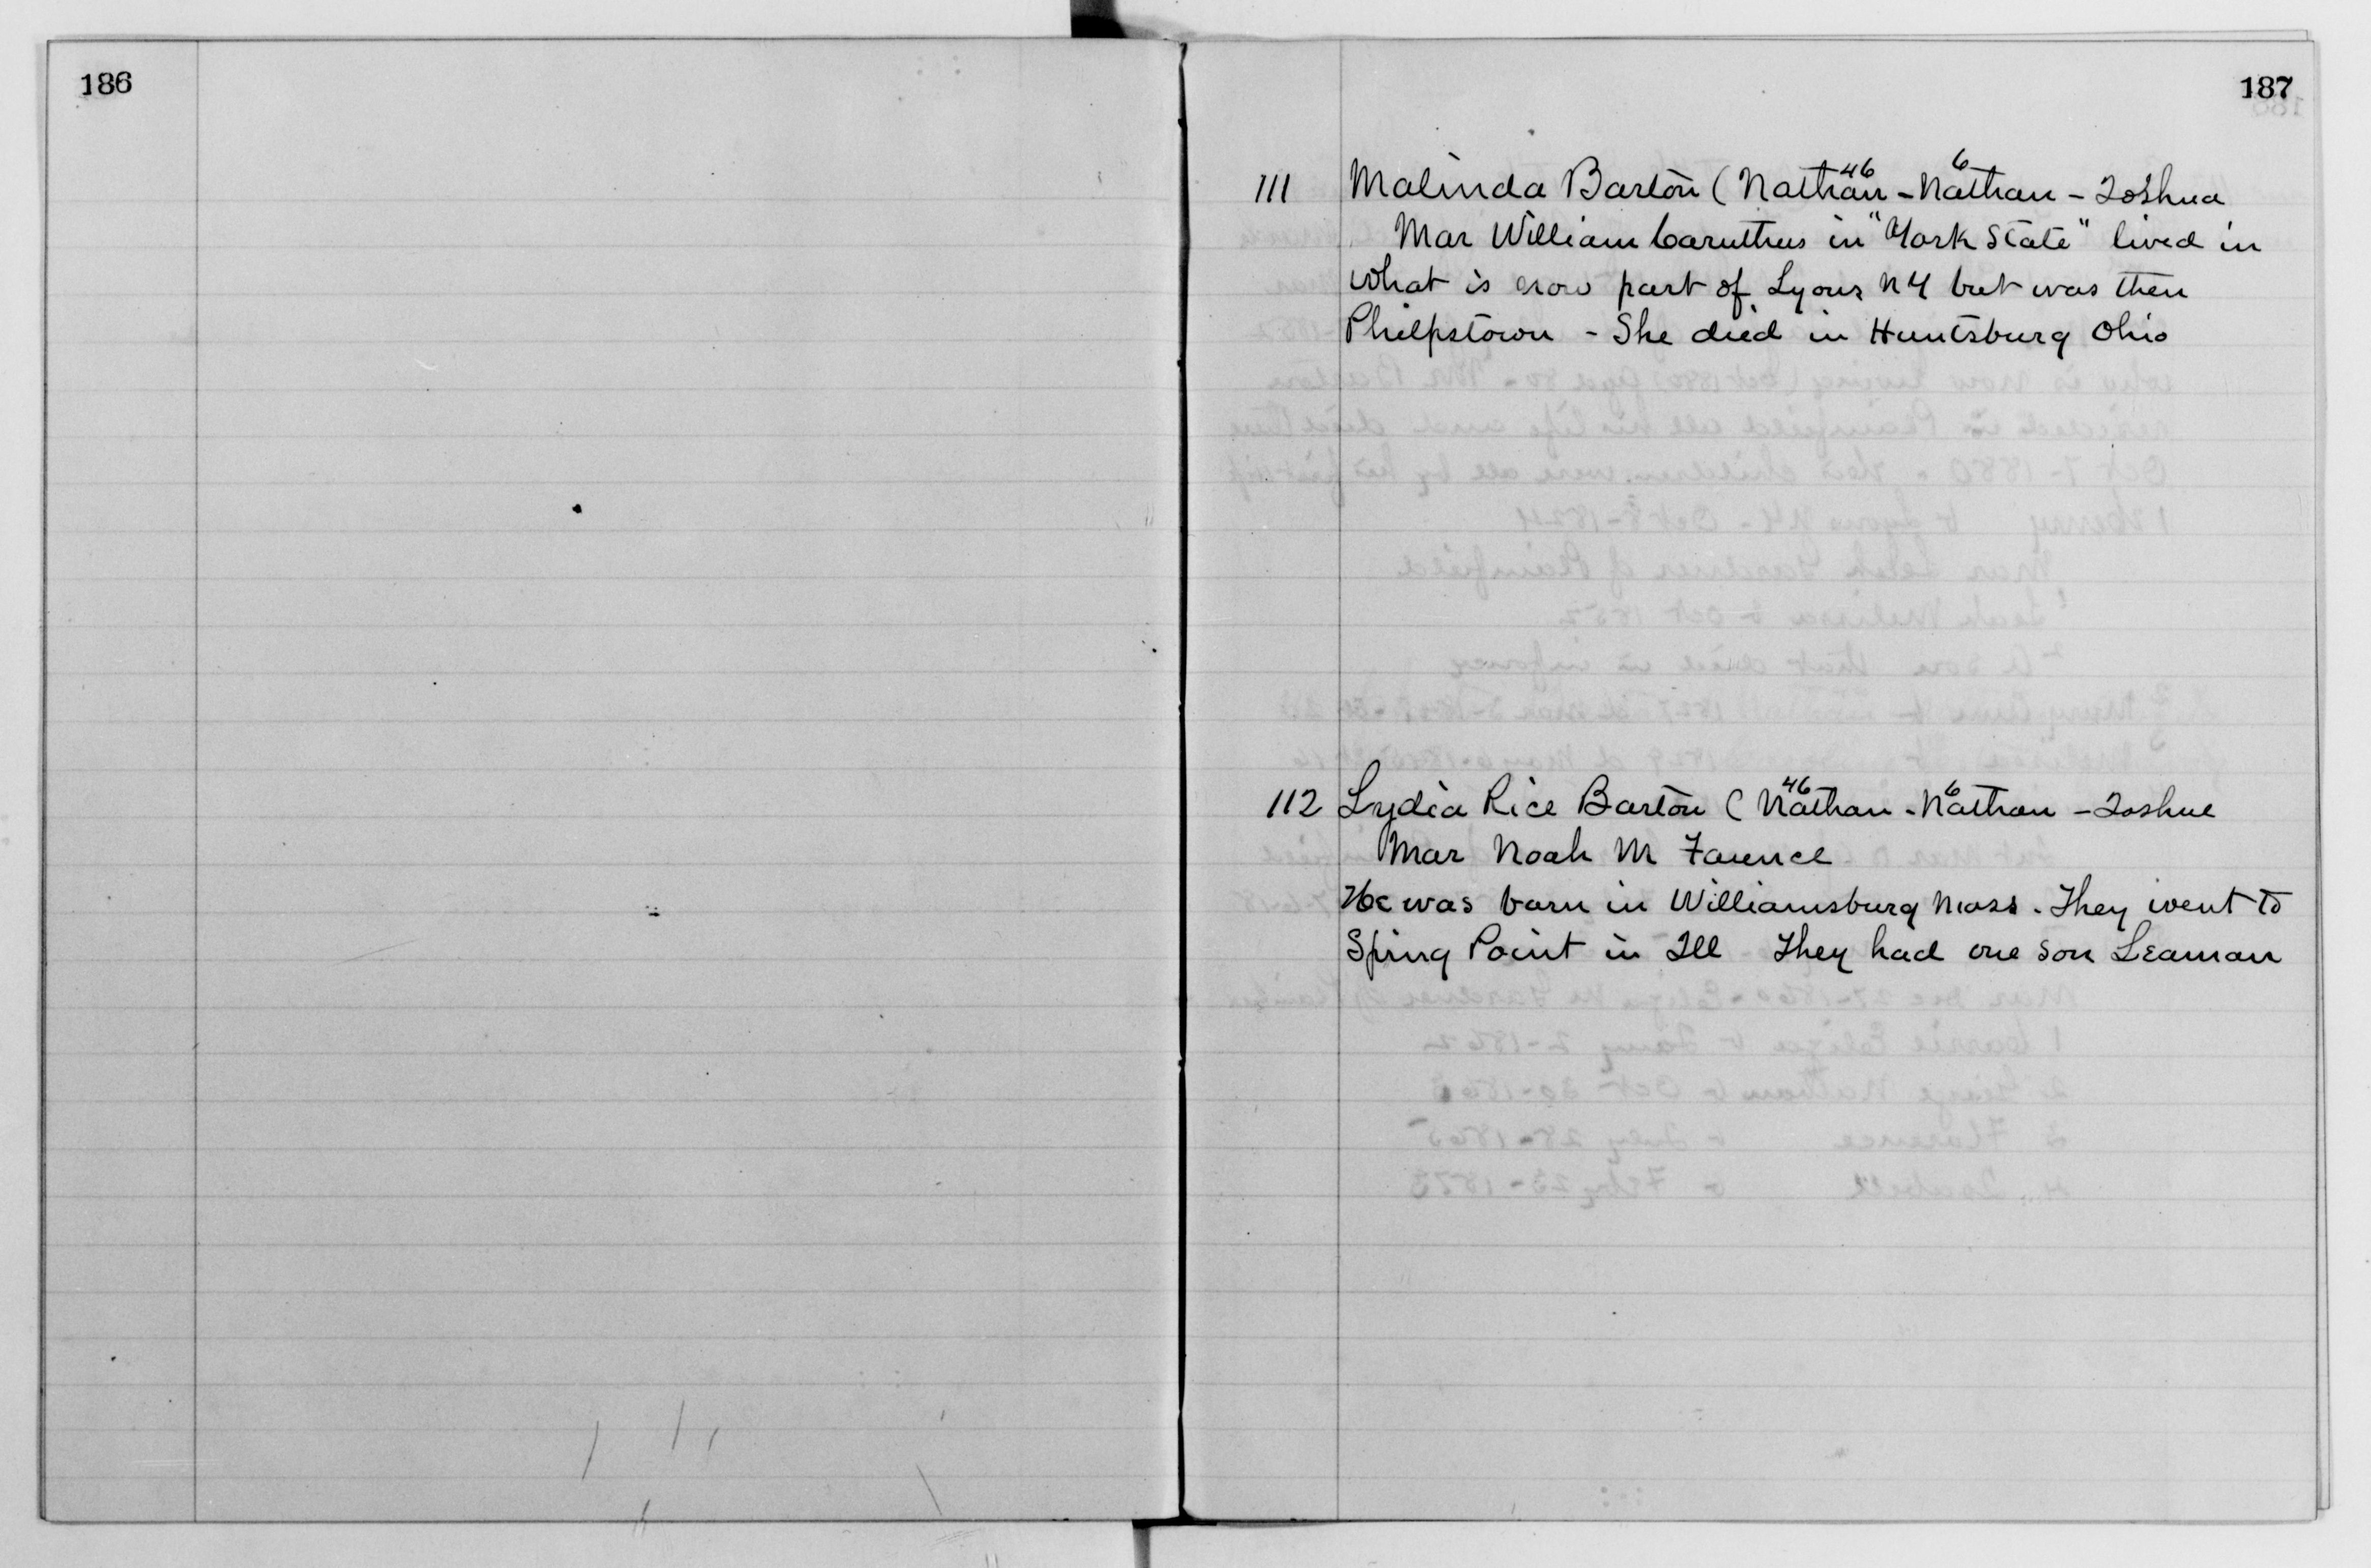 186
187
111 Malinda Barton (Nathan46 - Nathan6 - Joshua
Mar William Caruthus in "York State" lived in
what is now part of Lyons NY but was then
Philpstown - She died in Huntsburg Ohio
112 Lydia Rice Barton (Nathan46 - Nathan6 - Joshue
Mar Noah M Faunce
He was born in Williamsburg Mass. They went to
Spring Point in Ill They had one son Leaman